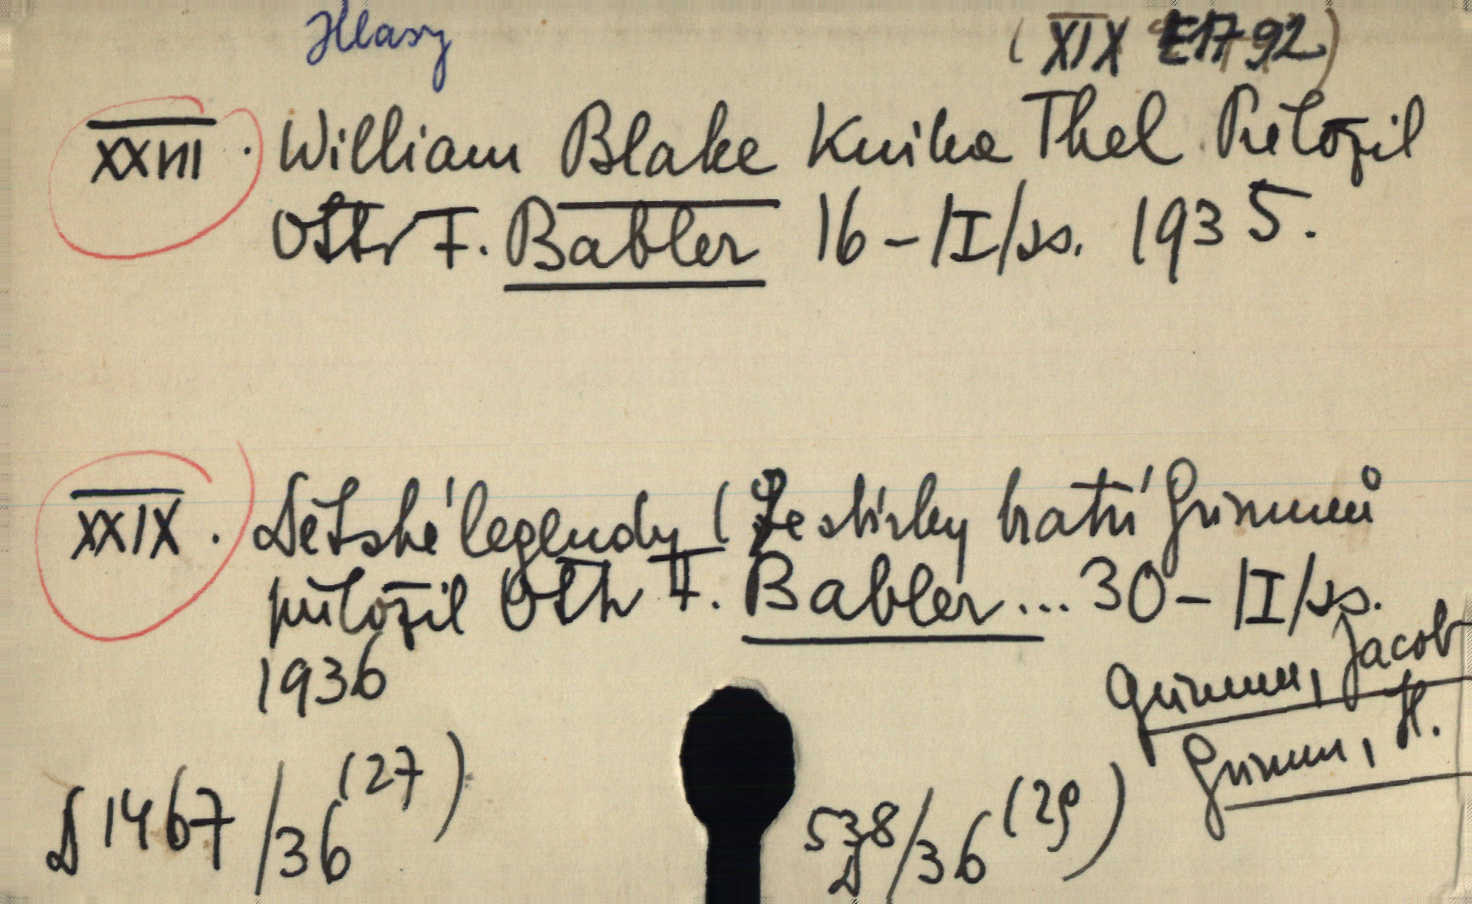 Hlasy
(XIX E 1792)
XXVII. William Blake Kniha Thel Přeložil
Otto F. Babler 16 - II/ss. 1935.
XXIX. Dětské legendy (Ze sbírky bratří Grimmů
přeložil Otto F. Babler... 30 - II/ss.
1936
Grimm, Jacob
Grimm, H.
D 1467/36 (27)
538/36 (29)
D